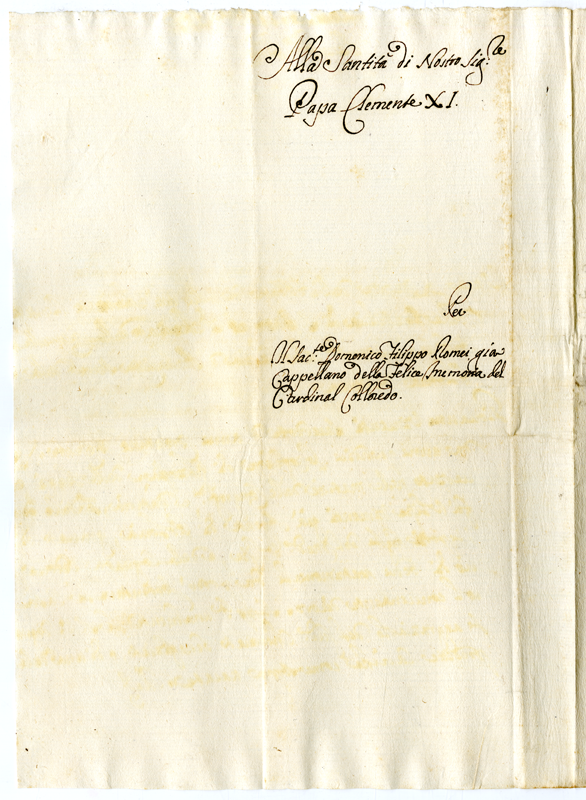 Alla Santità di Nostro Sig.re
Papa Clemente XI.
Per
Il Sac.te Domenico Filippo Romei già
Cappellano della Felice Memoria del
Cardinal Colloredo.